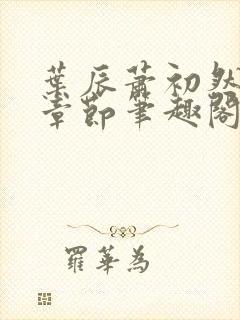 葉辰蕭初然
章節筆趣閣
羅華為